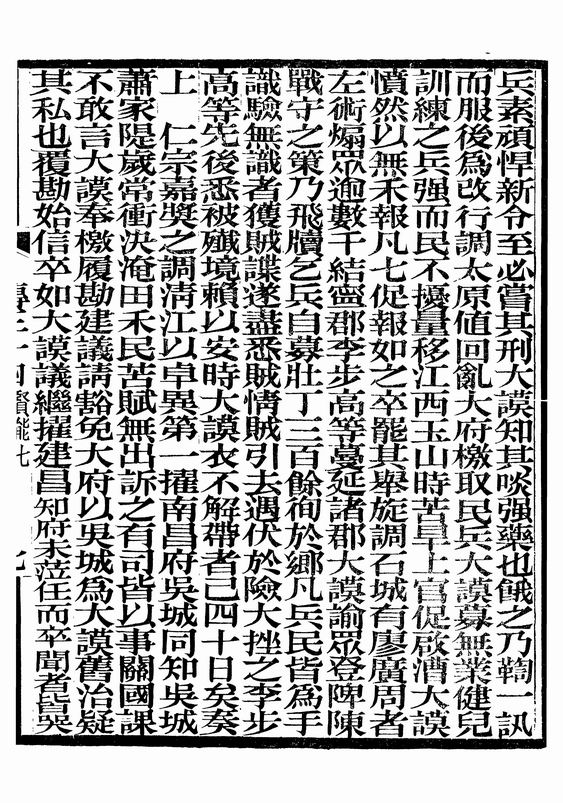 兵素頑悍新令至必嘗其刑大謨知其啖强藥也餓之乃鞫一訊
而服後為改行調太原值回亂大府檄取民兵大謨募無業健兒
訓練之兵强而民不擾量移江西玉山時苦旱上官促啟漕大謨
憤然以無禾報凡七促報如之卒罷其舉旋調石城有廖廣周者
左術煽眾逾數千結寧郡李步高等蔓延諸郡大謨諭眾登陴陳
戰守之策乃飛牘乞兵自募壯丁三百餘徇於鄉凡兵民皆為手
識驗無識者獲賊諜遂盡悉賊情賊引去遇伏於險大挫之李步
高等先後悉被殲境賴以安時大謨衣不解帶者已四十日矣奏
上　仁宗嘉獎之調清江以卓異第一擢南昌府吳城同知吳城
蕭家隄歲常衝決淹田禾民苦賦無出訴之有司皆以事關國課
不敢言大謨奉檄履勘建議請豁免大府以吳城為大謨舊治疑
其私也覆勘始信卒如大謨議繼擢建昌知府未蒞任而卒聞者皆哭
二十四 賢能七